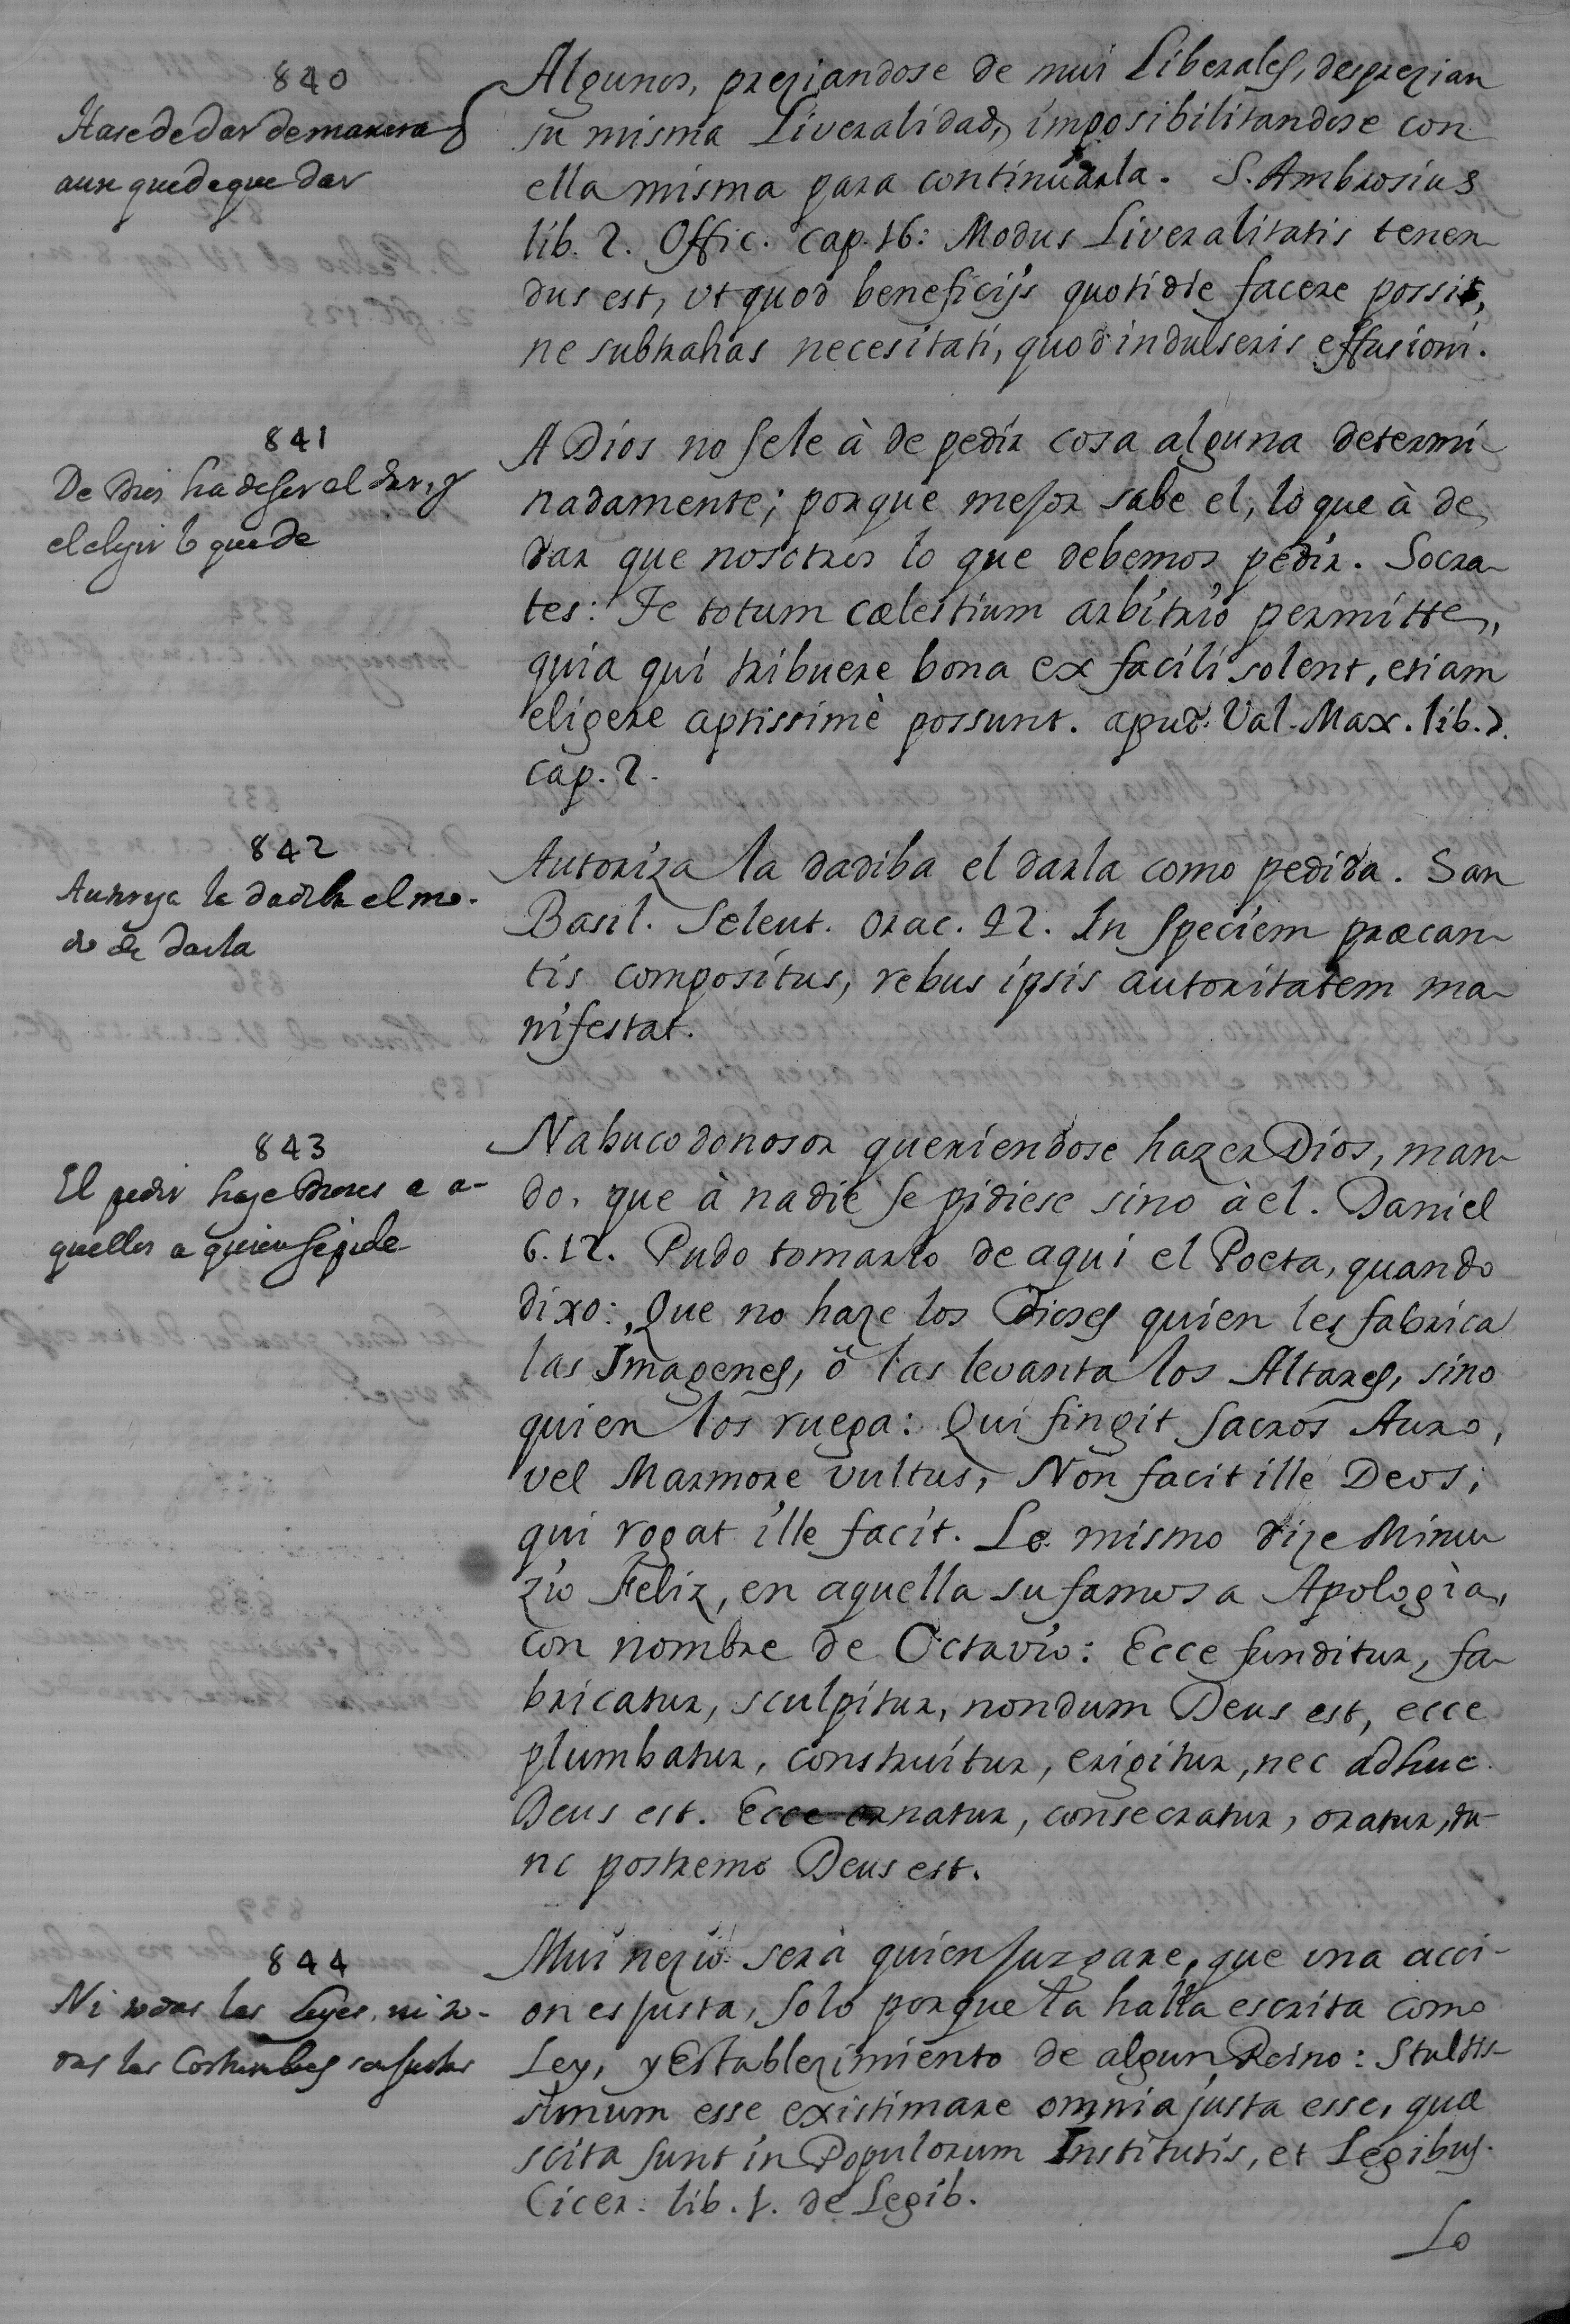 840
Hase de dar de manera q
aun quede que dar
Algunos, preziandose de mui Liberales, desprezian
su misma Liveralidad, imposibilitandose con
ella misma para continuarla. S. Ambrosius
lib. 2. Offic. cap. 16: Modus Liveralitatis tenen-
dus est, vt quod beneficijs quotidie facere possis,
ne subtrahas necesitati, quod indulseris effusioni.
841
De Dios ha de ser el dar, y
el elegir lo que de
A Dios no se le à de pedir cosa alguna determi-
nadamente; porque mejor sabe el, lo que à de
dar que nosotros lo que debemos pedir. Socra-
tes: Te totum cælestium arbitrio permitte,
quia qui tribuere bona ex facili solent, etiam
eligere aptissimè possunt. apud. Val. Max. lib. 7.
cap. 2.
842
Autoriza la dadiba el mo-
do de darla
Autoriza la dadiba el darla como pedida. San
Basil. Seleut. orac. 22. In speciem præcan-
tis compositus, rebus ipsis autoritatem ma-
nifestat.
843
El pedir haze Dioses a a-
quellos a quien se pide
Nabucodonosor queriendose hazer Dios, man-
do, que à nadie se pidiese sino à el. Daniel
6. 12. Pudo tomarlo de aqui el Poeta, quando
dixo: Que no haze los Dioses quien les fabrica
las Imagenes, ò las levanta los Altares, sino
quien los ruega: Qui fingit sacros Auro,
vel Marmore vultus, Non facit ille Deos;
qui rogat ille facit. Lo mismo dize Minu-
zio Feliz, en aquella su famosa Apologìa,
con nombre de Octavio: Ecce funditur, fa-
bricatur, sculpitur, nondum Deus est, ecce
plumbatur, construitur, erigitur, nec adhuc
Deus est. Ecce ornatur, consecratur, oratur, tu-
nc postremo Deus est.
844
Ni todas las Leyes, ni to-
das las Costumbres son justas
Mui nezio serà quien juzgare, que vna acci-
on es justa, solo porque la halla escrita como
Ley, y Establezimiento de algun Reino: Stultis-
simum esse existimare omnia justa esse, quæ
scita sunt in Populorum Institutis, et Legibus.
Cicer: lib. 1. de Legib.
Lo